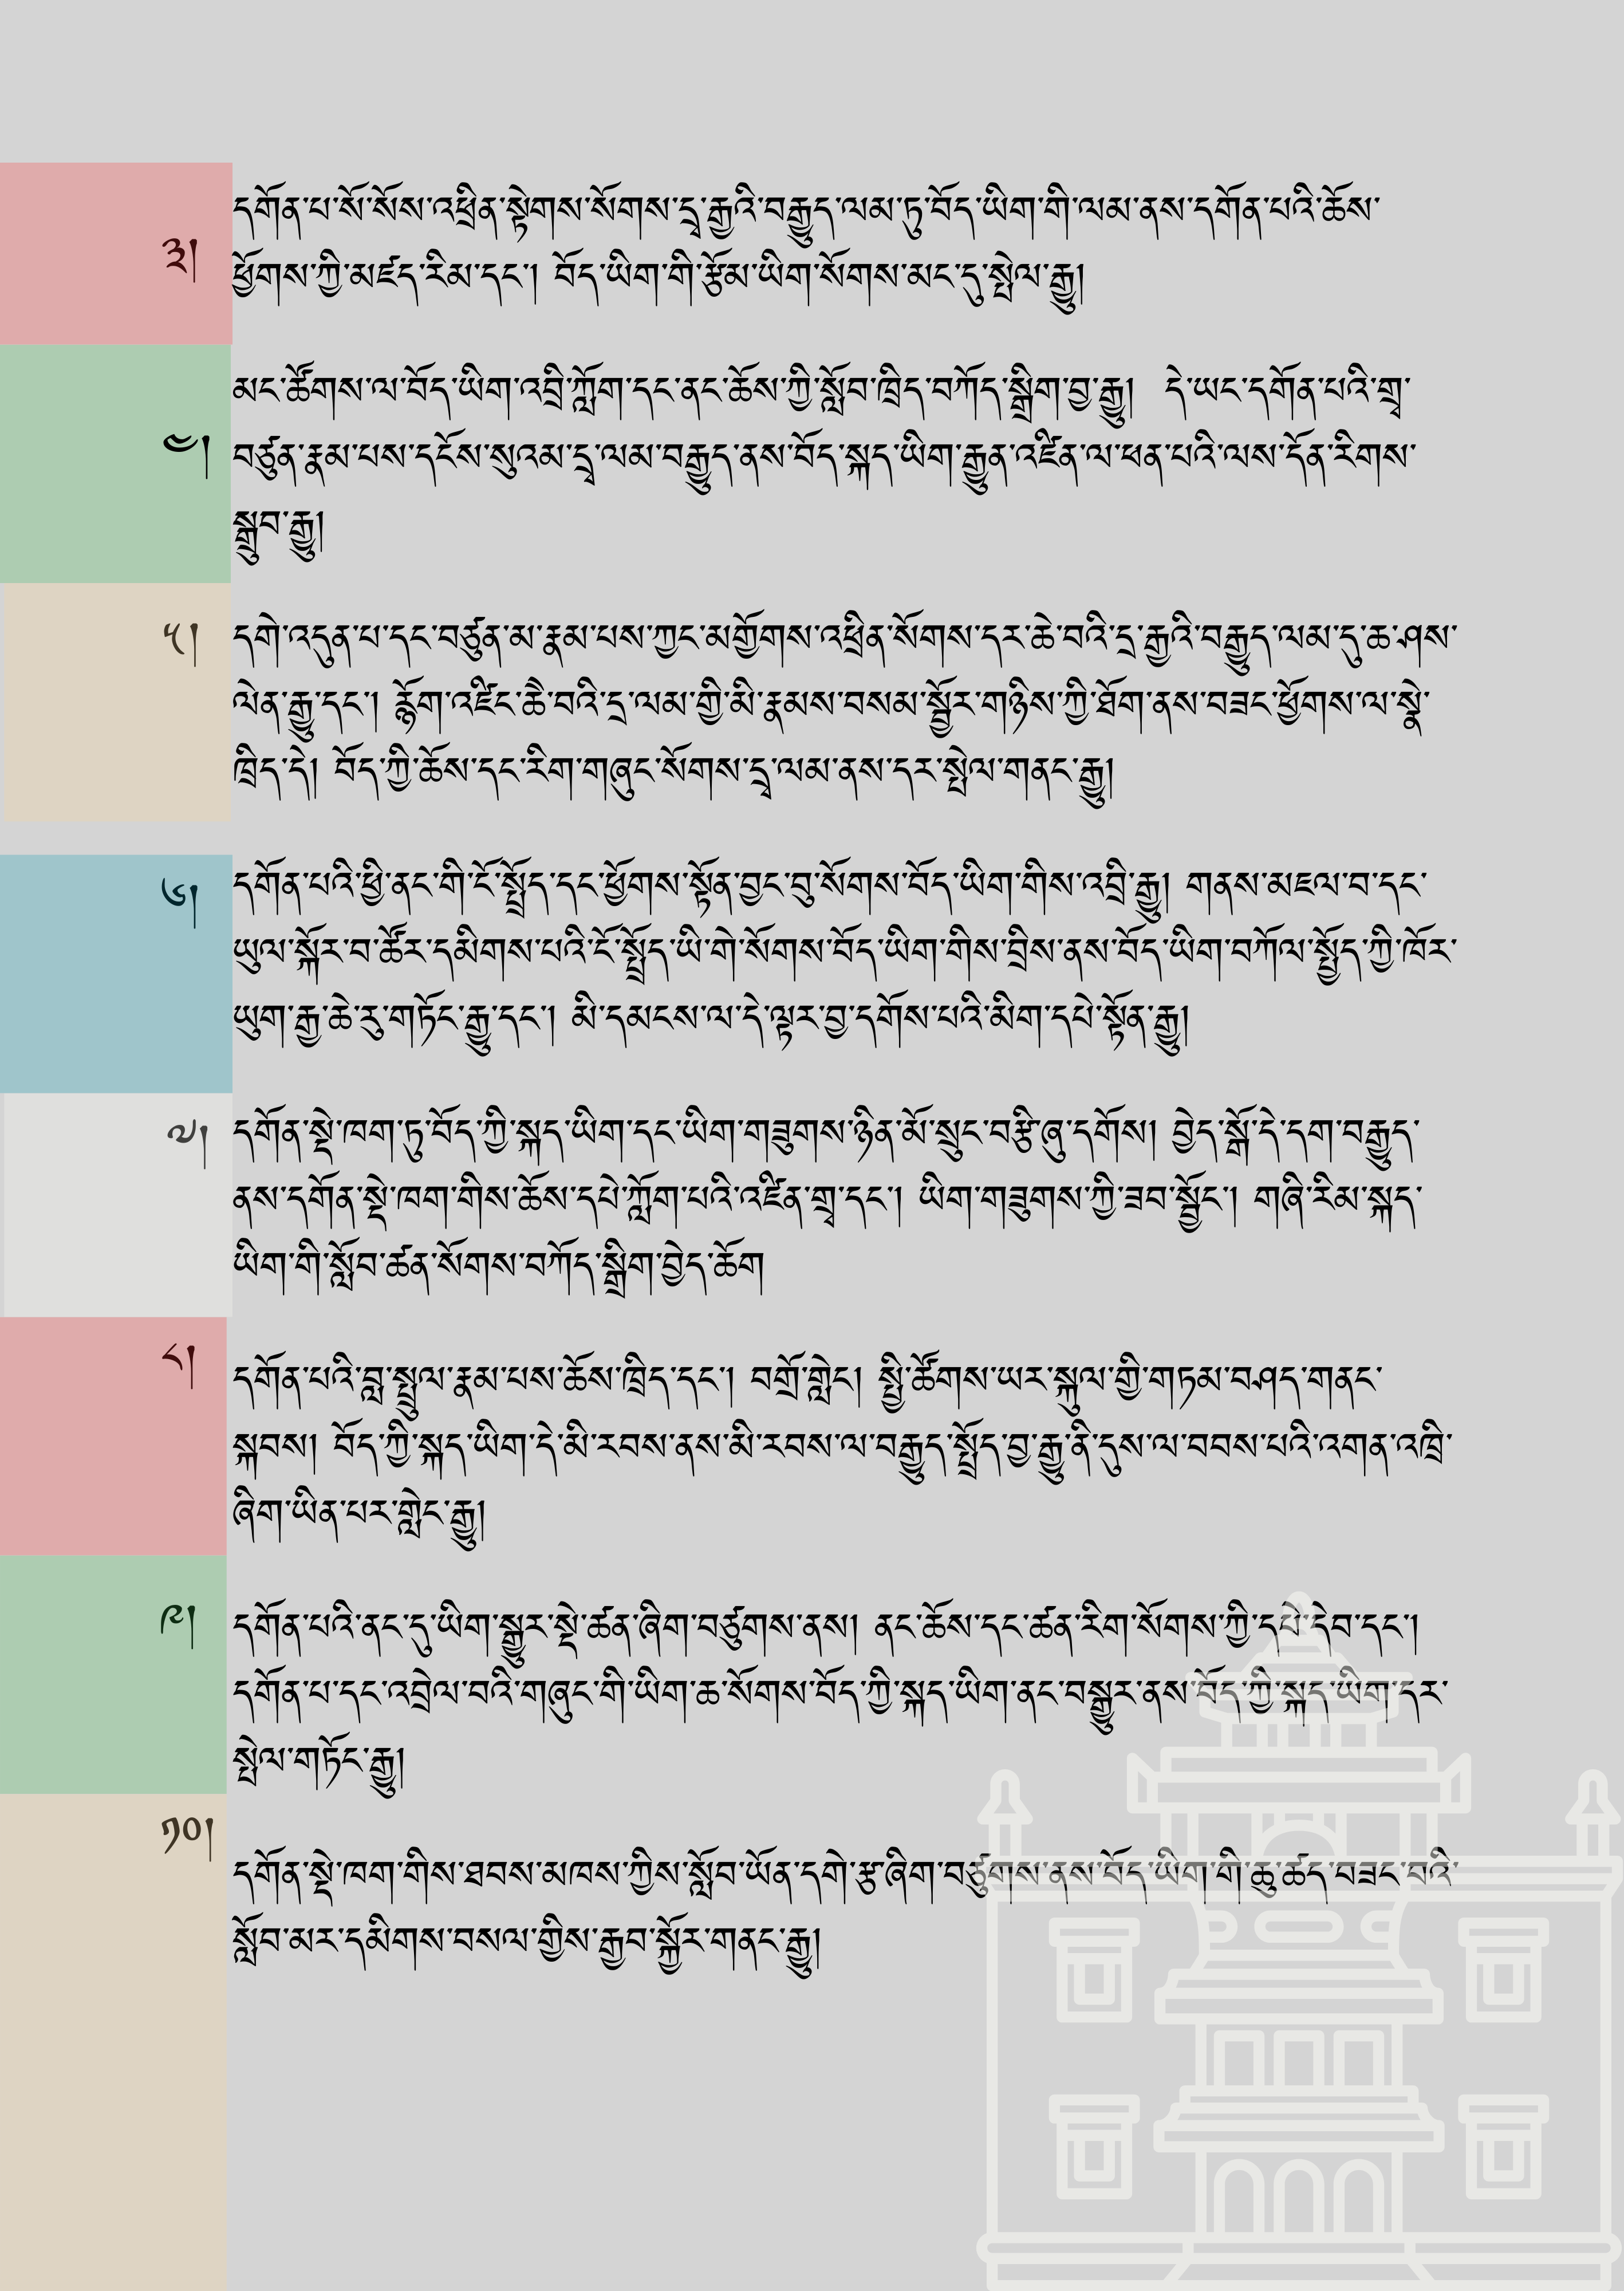 ༣། དགོན་པ་སོ་སོས་འཕྲིན་སྟེགས་སོགས་དྲྭ་རྒྱའི་བརྒྱུད་ལམ་ཏུ་བོད་ཡིག་གི་ལམ་ནས་དགོན་པའི་ཆོས་
ཕྱོགས་ཀྱི་མཛད་རིམ་དང་། བོད་ཡིག་གི་རྩོམ་ཡིག་སོགས་མང་དུ་སྤེལ་རྒྱུ།
༤། མང་ཚོགས་ལ་བོད་ཡིག་འབྲི་ཀློག་དང་ནང་ཆོས་ཀྱི་སློབ་ཁྲིད་བཀོད་སྒྲིག་བྱ་རྒྱུ། དེ་ཡང་དགོན་པའི་གྲྭ་
བཙུན་རྣམ་པས་དངོས་སུའམ་དྲྭ་ལམ་བརྒྱུད་ནས་བོད་སྐད་ཡིག་རྒྱུན་འཛིན་ལ་ཕན་པའི་ལས་དོན་རིགས་
སྒྲུབ་རྒྱུ།
༥། དགེ་འདུན་པ་དང་བཙུན་མ་རྣམ་པས་ཀྱང་མགྱོགས་འཕྲིན་སོགས་དར་ཆེ་བའི་དྲ་རྒྱའི་བརྒྱུད་ལམ་དུ་ཆ་ཤས་
ལེན་རྒྱུ་དང་། རྙོག་འཛིང་ཆེ་བའི་དྲ་ལམ་གྱི་མི་རྣམས་བསམ་སྦྱོར་གཉིས་ཀྱི་ཐོག་ནས་བཟང་ཕྱོགས་ལ་སྣེ་
ཁྲིད་དེ། བོད་ཀྱི་ཆོས་དང་རིག་གཞུང་སོགས་དྲྭ་ལམ་ནས་དར་སྤེལ་གནང་རྒྱུ།
༦། དགོན་པའི་ཕྱི་ནང་གི་ངོ་སྤྲོད་དང་ཕྱོགས་སྟོན་བྱང་བུ་སོགས་བོད་ཡིག་གིས་འབྲི་རྒྱུ། གནས་མཇལ་བ་དང་
ཡུལ་སྐོར་བ་ཚོར་དམིགས་པའི་ངོ་སྤྲོད་ཡི་གེ་སོགས་བོད་ཡིག་གིས་བྲིས་ནས་བོད་ཡིག་བཀོལ་སྤྱོད་ཀྱི་ཁོར་
ཡུག་རྒྱ་ཆེ་རུ་གཏོང་རྒྱུ་དང་། མི་དམངས་ལ་དེ་ལྟར་བྱ་དགོས་པའི་མིག་དཔེ་སྟོན་རྒྱུ།
༧། དགོན་སྡེ་ཁག་ཏུ་བོད་ཀྱི་སྐད་ཡིག་དང་ཡིག་གཟུགས་ཉིན་མོ་སྲུང་བརྩི་ཞུ་དགོས། བྱེད་སྒོ་དེ་དག་བརྒྱུད་
ནས་དགོན་སྡེ་ཁག་གིས་ཆོས་དཔེ་ཀློག་པའི་འཛིན་གྲྭ་དང་། ཡིག་གཟུགས་ཀྱི་ཟབ་སྦྱོང་། གཞི་རིམ་སྐད་
ཡིག་གི་སློབ་ཚན་སོགས་བཀོད་སྒྲིག་བྱེད་ཆོག
༨། དགོན་པའི་བླ་སྤྲུལ་རྣམ་པས་ཆོས་ཁྲིད་དང་། བགྲོ་གླེང་། སྤྱི་ཚོགས་ཡར་སྐུལ་གྱི་གཏམ་བཤད་གནང་
སྐབས། བོད་ཀྱི་སྐད་ཡིག་དེ་མི་རབས་ནས་མི་རབས་ལ་བརྒྱུད་སྤྲོད་བྱ་རྒྱུ་ནི་དུས་ལ་བབས་པའི་འགན་འཁྲི་
ཞིག་ཡིན་པར་གླེང་རྒྱུ།
༩། དགོན་པའི་ནང་དུ་ཡིག་སྒྱུར་སྡེ་ཚན་ཞིག་བཙུགས་ནས། ནང་ཆོས་དང་ཚན་རིག་སོགས་ཀྱི་དཔེ་དེབ་དང་།
དགོན་པ་དང་འབྲེལ་བའི་གཞུང་གི་ཡིག་ཆ་སོགས་བོད་ཀྱི་སྐད་ཡིག་ནང་བསྒྱུར་ནས་བོད་ཀྱི་སྐད་ཡིག་དར་
སྤེལ་གཏོང་རྒྱུ།
༡༠། དགོན་སྡེ་ཁག་གིས་ཐབས་མཁས་ཀྱིས་སློབ་ཡོན་དགེ་རྩ་ཞིག་བཙུགས་ནས་བོད་ཡིག་གི་ཆུ་ཚད་བཟང་བའི་
སློབ་མར་དམིགས་བསལ་གྱིས་རྒྱབ་སྐྱོར་གནང་རྒྱུ།